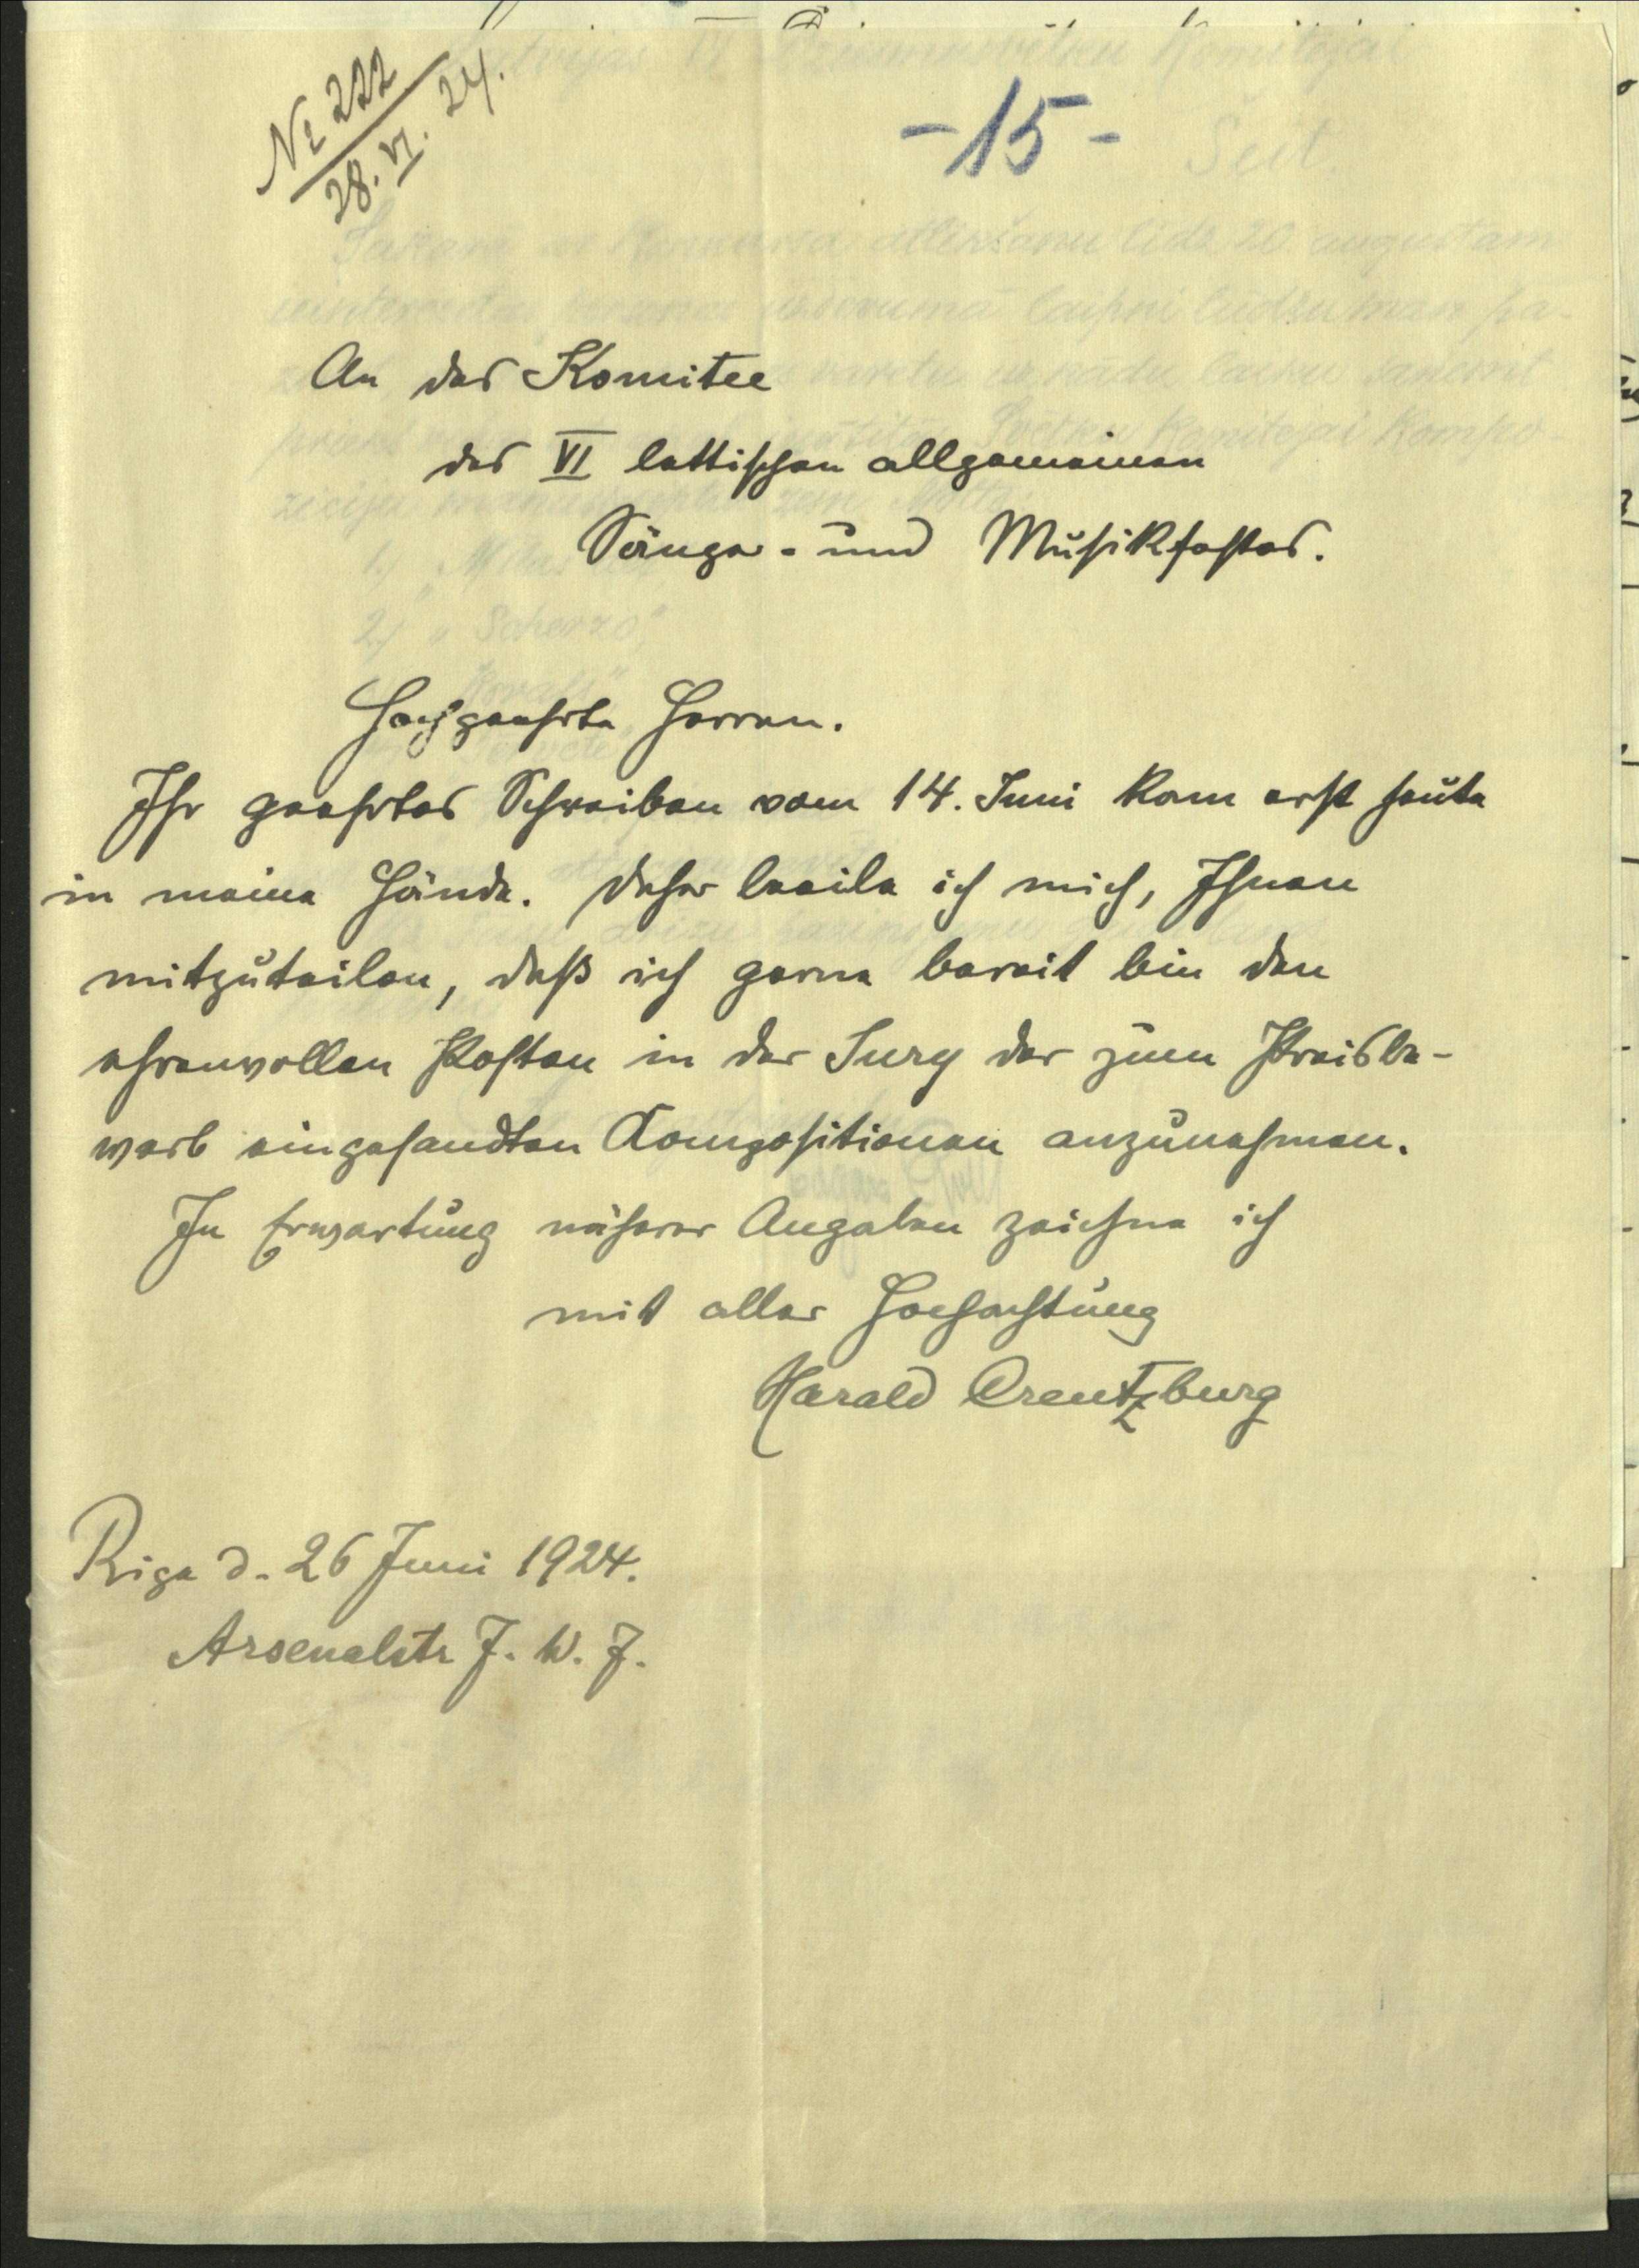 № 222
28. VI. 24.
-15-
An das Komitee
des VI lettischen allgemeinen
Sänger- und Musikfestes.
Hochgeehrte Herren.
Ihr geehrtes Schreiben vom 14. Juni kam erst heute
in meine Hände. Daher beeile ich mich, Ihnen
mitzuteilen, daß ich gerne bereit bin den
ehrenvollen Posten in der Jury der zum Preisbe-
werb eingesandten Kompositionen anzunehmen.
In Erwartung näherer Angaben zeichne ich
mit aller Hochachtung
Harald Creutzburg
Riga d. 26 Juni 1924.
Arsenalstr 7. W. 7.